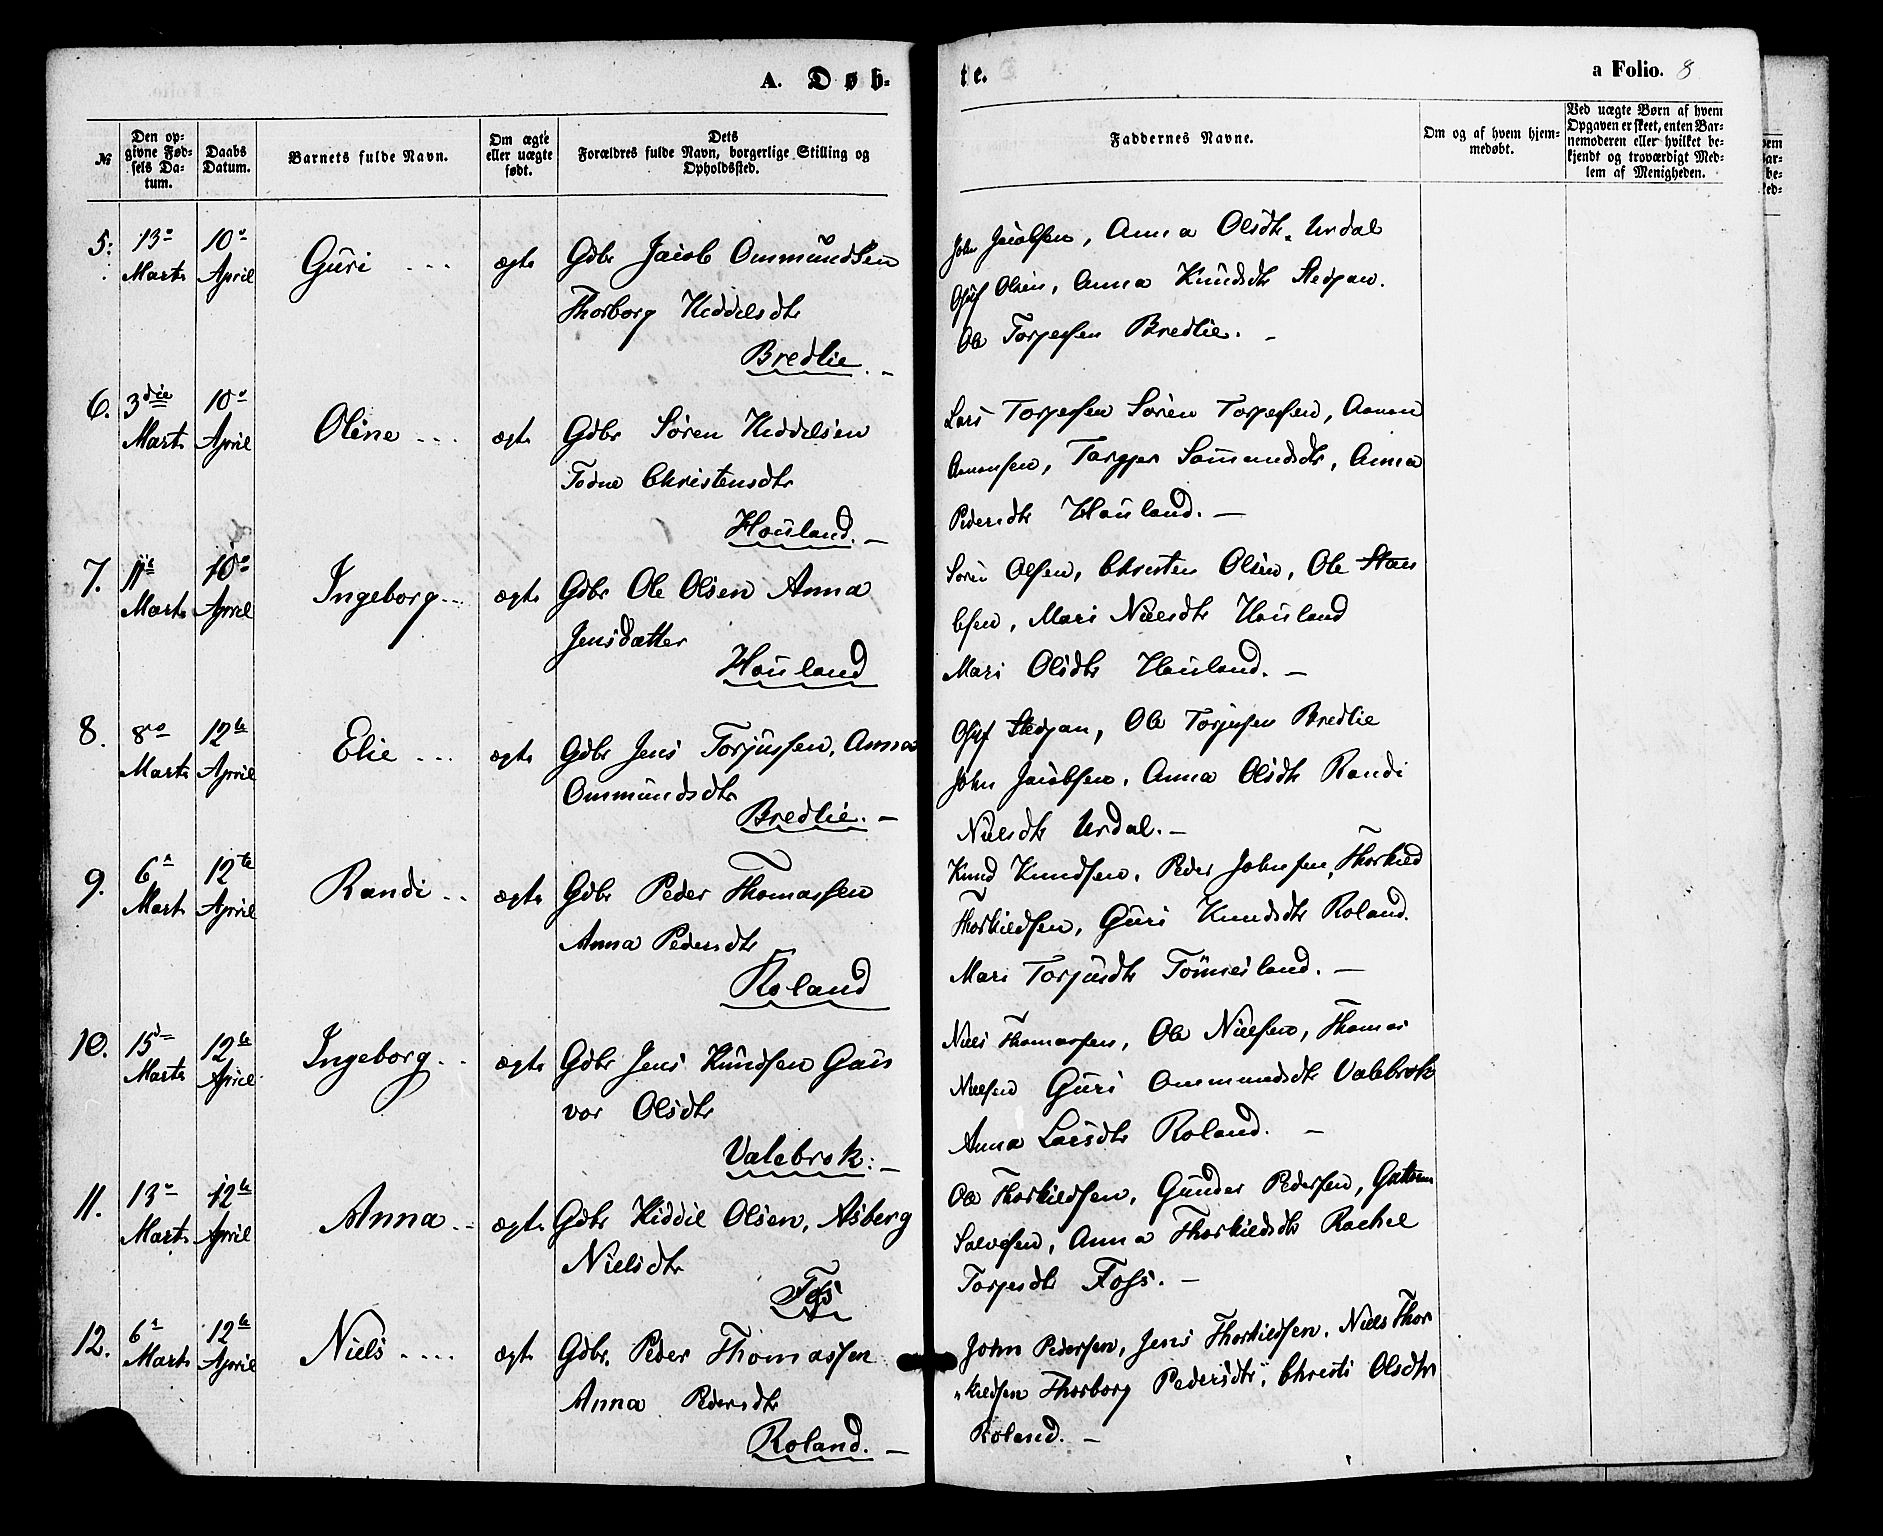 A. Døb-
te.
a Folio. 8
№
Den op-
givne Fød-
sels Da-
tum.
Daabs
Datum.
Barnets fulde Navn.
Om ægte
eller uægte
født.
Dets
Forældres fulde Navn, borgerlige Stilling og
Opholdssted.
Faddernes Navne.
Om og af hvem hjem-
medøbt.
Ved uægte Børn af hvem
Opgaven er skeet, enten Bar-
nemoderen eller hvilket be-
kjendt og troværdigt Med-
lem af Menigheden.
5. 13de Marts 10de April Guri ægte Gdbr Jacob Ommundsen
Thorborg Kiddelsdtr
Bredlie.
John Jacobsen, Anna Olsdtr Urdal
Olsen, Anna Knudsdtr Stedjan.
Ole Torjesen Bredlie.
6. 3die Marts 10de April Oline ægte Gdbr Søren Kiddelsen
Todne Christensdtr
Houland.
Lars Torjesen Søren Torjesen, Aanen
Aanensen, Targjer Sammundsdtr, Anna
Pedersdtr Houland.
7. 11te Marts 10de April Ingeborg ægte Gdbr Ole Olsen Anna
Jensdatter
Houland
Søren Olsen, Christen Olsen, Ole
Mari Nielsdtr Houland
Mari Olsdtr Houland.
8. 8de Marts 12te April Elie ægte Gdbr Jens Torjussen, Anna
Ommundsdtr
Bredlie.
Stedjan, Ole Torjusen Bredlie
John Jacobsen, Anna Olsdtr Randi
Nielsdtr Urdal.
9. 6te Marts 12te April Randi ægte Gdbr Peder Thomassen
Anna Pedersdtr
Roland
Knud Knudsen, Peder Johnsen, Thorkild
Thorkildsen, Guri Knudsdtr Roland.
Mari Torjusdtr Tømesland.
10. 15de Marts 12te April Ingeborg ægte Gdbr Jens Knudsen Gun
vor Olsdtr
Valebrok.
Niels Thomassen, Ole Nielsen, Thomas
Nielsen Guri Ommundsdtr Valebrok
Anna Larsdtr Roland.
11. 13de Marts 12te April Anna ægte Gdbr Kiddil Olsen, Asberg
Nielsdtr
Foss
Ole Thorkildsen, Gunder Pedersen,
Salvesen, Anna Thorkildsdtr Rachel
Torjesdtr Foss.
12. 6te Marts 12te April Niels ægte Gdbr. Peder Thomassen
Anna Pedersdtr
Roland.
John Pedersen, Jens Thorkildsen, Niels Thor
kildsen Thorborg Pedersdtr, Christi Olsdtr
Roland.